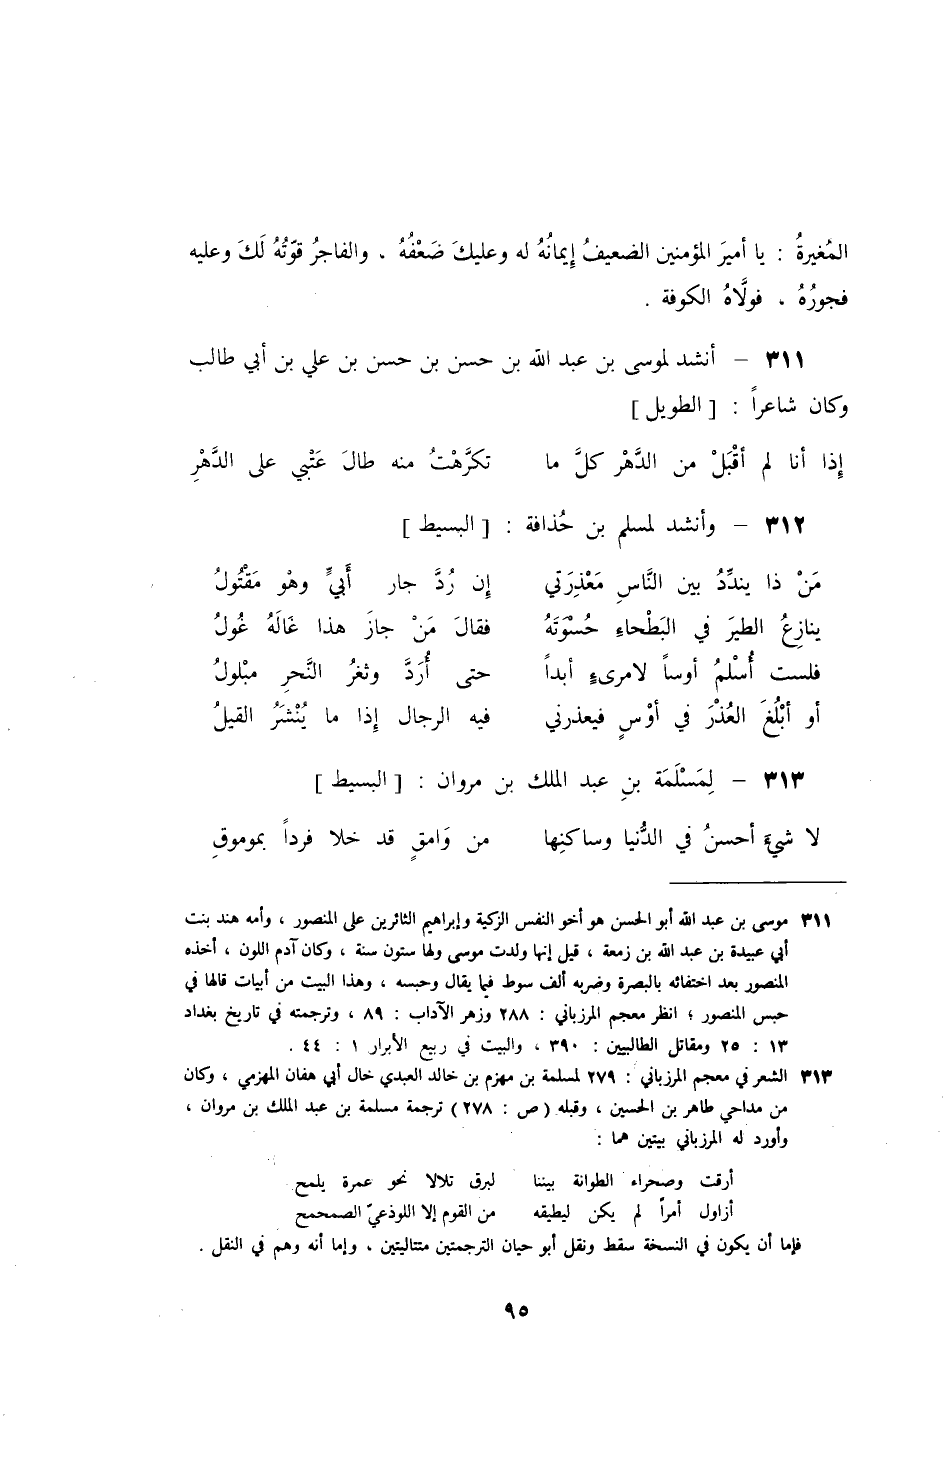 المُغيرةُ : يا أميرَ المؤمنين الضعيفُ إيمانُهُ له وعليكَ ضَعْفُهُ ، والفاجرُ قوّتُهُ لَكَ وعليه
فجورُهُ ، فولَّاهُ الكوفة .
٣١١ – أنشد لموسى بن عبد الله بن حسن بن حسن بن علي بن أبي طالب
وكان شاعراً : [ الطويل ]
إذا أنا لم أقْبَلْ من الدَّهْر كلَّ ما تكرَّهْتُ منه طالَ عَتْبي على الدَّهْرِ
٣١٢ – وأنشد لمسلم بن حُذافة : [ البسيط ]
مَنْ ذا يندِّدُ بين النَّاسِ مَعْذِرَتي إن رُدَّ جار أَبيٍّ وهْو مَقْتُولُ
ينازِعُ الطيرَ في البَطْحاءِ حُسْوَتَهُ فقالَ مَنْ جازَ هذا غَالَهُ غُولُ
فلست أُسْلمُ أوساً لامرىءٍ أبداً حتى أُرَدَّ وثغرُ النَّحرِ مبْلولُ
أو أبْلُغَ العُذْرَ في أوْسٍ فيعذرني فيه الرجال إذا ما يُنْشَرُ القيلُ
٣١٣ – لِمَسْلَمَة بنِ عبد الملك بن مروان : [ البسيط ]
لا شيءَ أحسنُ في الدُّنيا وساكنِها من وَامقٍ قد خلا فرداً بموموقِ
٣١١ موسى بن عبد الله أبو الحسن هو أخو النفس الزكية وإبراهيم الثائرين على المنصور ، وأمه هند بنت
أبي عبيدة بن عبد الله بن زمعة ، قيل إنها ولدت موسى ولها ستون سنة ، وكان آدم اللون ، أخذه
المنصور بعد اختفائه بالبصرة وضربه ألف سوط فيما يقال وحبسه ، وهذا البيت من أبيات قالها في
حبس المنصور ؛ انظر معجم المرزباني : ٢٨٨ وزهر الآداب : ٨٩ ، وترجمته في تاريخ بغداد
١٣ : ٢٥ ومقاتل الطالبيين : ٣٩٠ ، والبيت في ربيع الأبرار ١ : ٤٤ .
٣١٣ الشعر في معجم المرزباني : ٢٧٩ لمسلمة بن مهزم بن خالد العبدي خال أبي هفان المهزمي ، وكان
من مداحي طاهر بن الحسين ، وقبله ( ص : ٢٧٨ ) ترجمة مسلمة بن عبد الملك بن مروان ،
وأورد له المرزباني بيتين هما :
أرقت وصحراء الطوانة بيننا لبرق تلالا نحو عمرة يلمح
أزاول أمراً لم يكن ليطيقه من القوم إلا اللوذعيّ الصمحمح
فإما أن يكون في النسخة سقط ونقل أبو حيان الترجمتين متتاليتين ، وإما أنه وهم في النقل .
٩٥